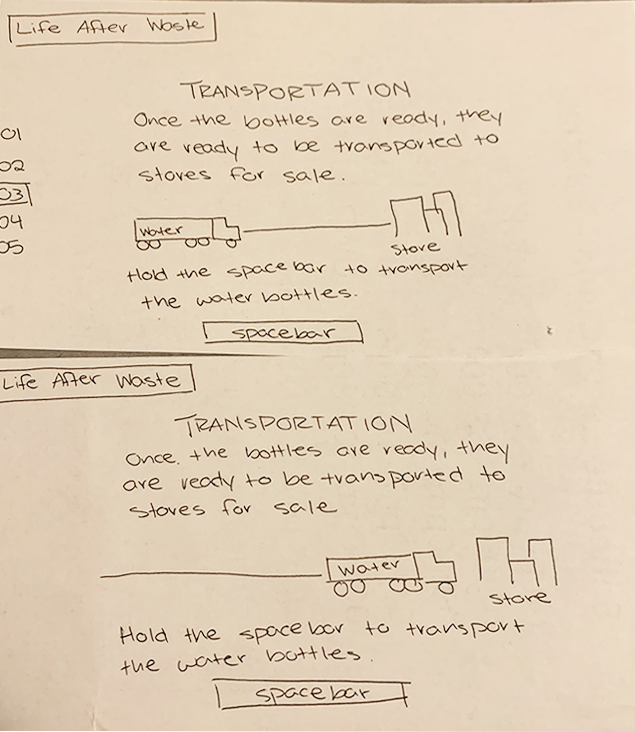 Life After Waste
TRANSPORTATION
Once the bottles are ready, they
are ready to be transported to
stores for sale.
01
02
03
04
05
Water
Store
Hold the spacebar to transport
the water bottles.
spacebar
Life After Waste
TRANSPORTATION
Once. the bottles are ready, they
are ready to be transported to
stores for sale
Water
Store
Hold the spacebar to transport
the water bottles.
spacebar